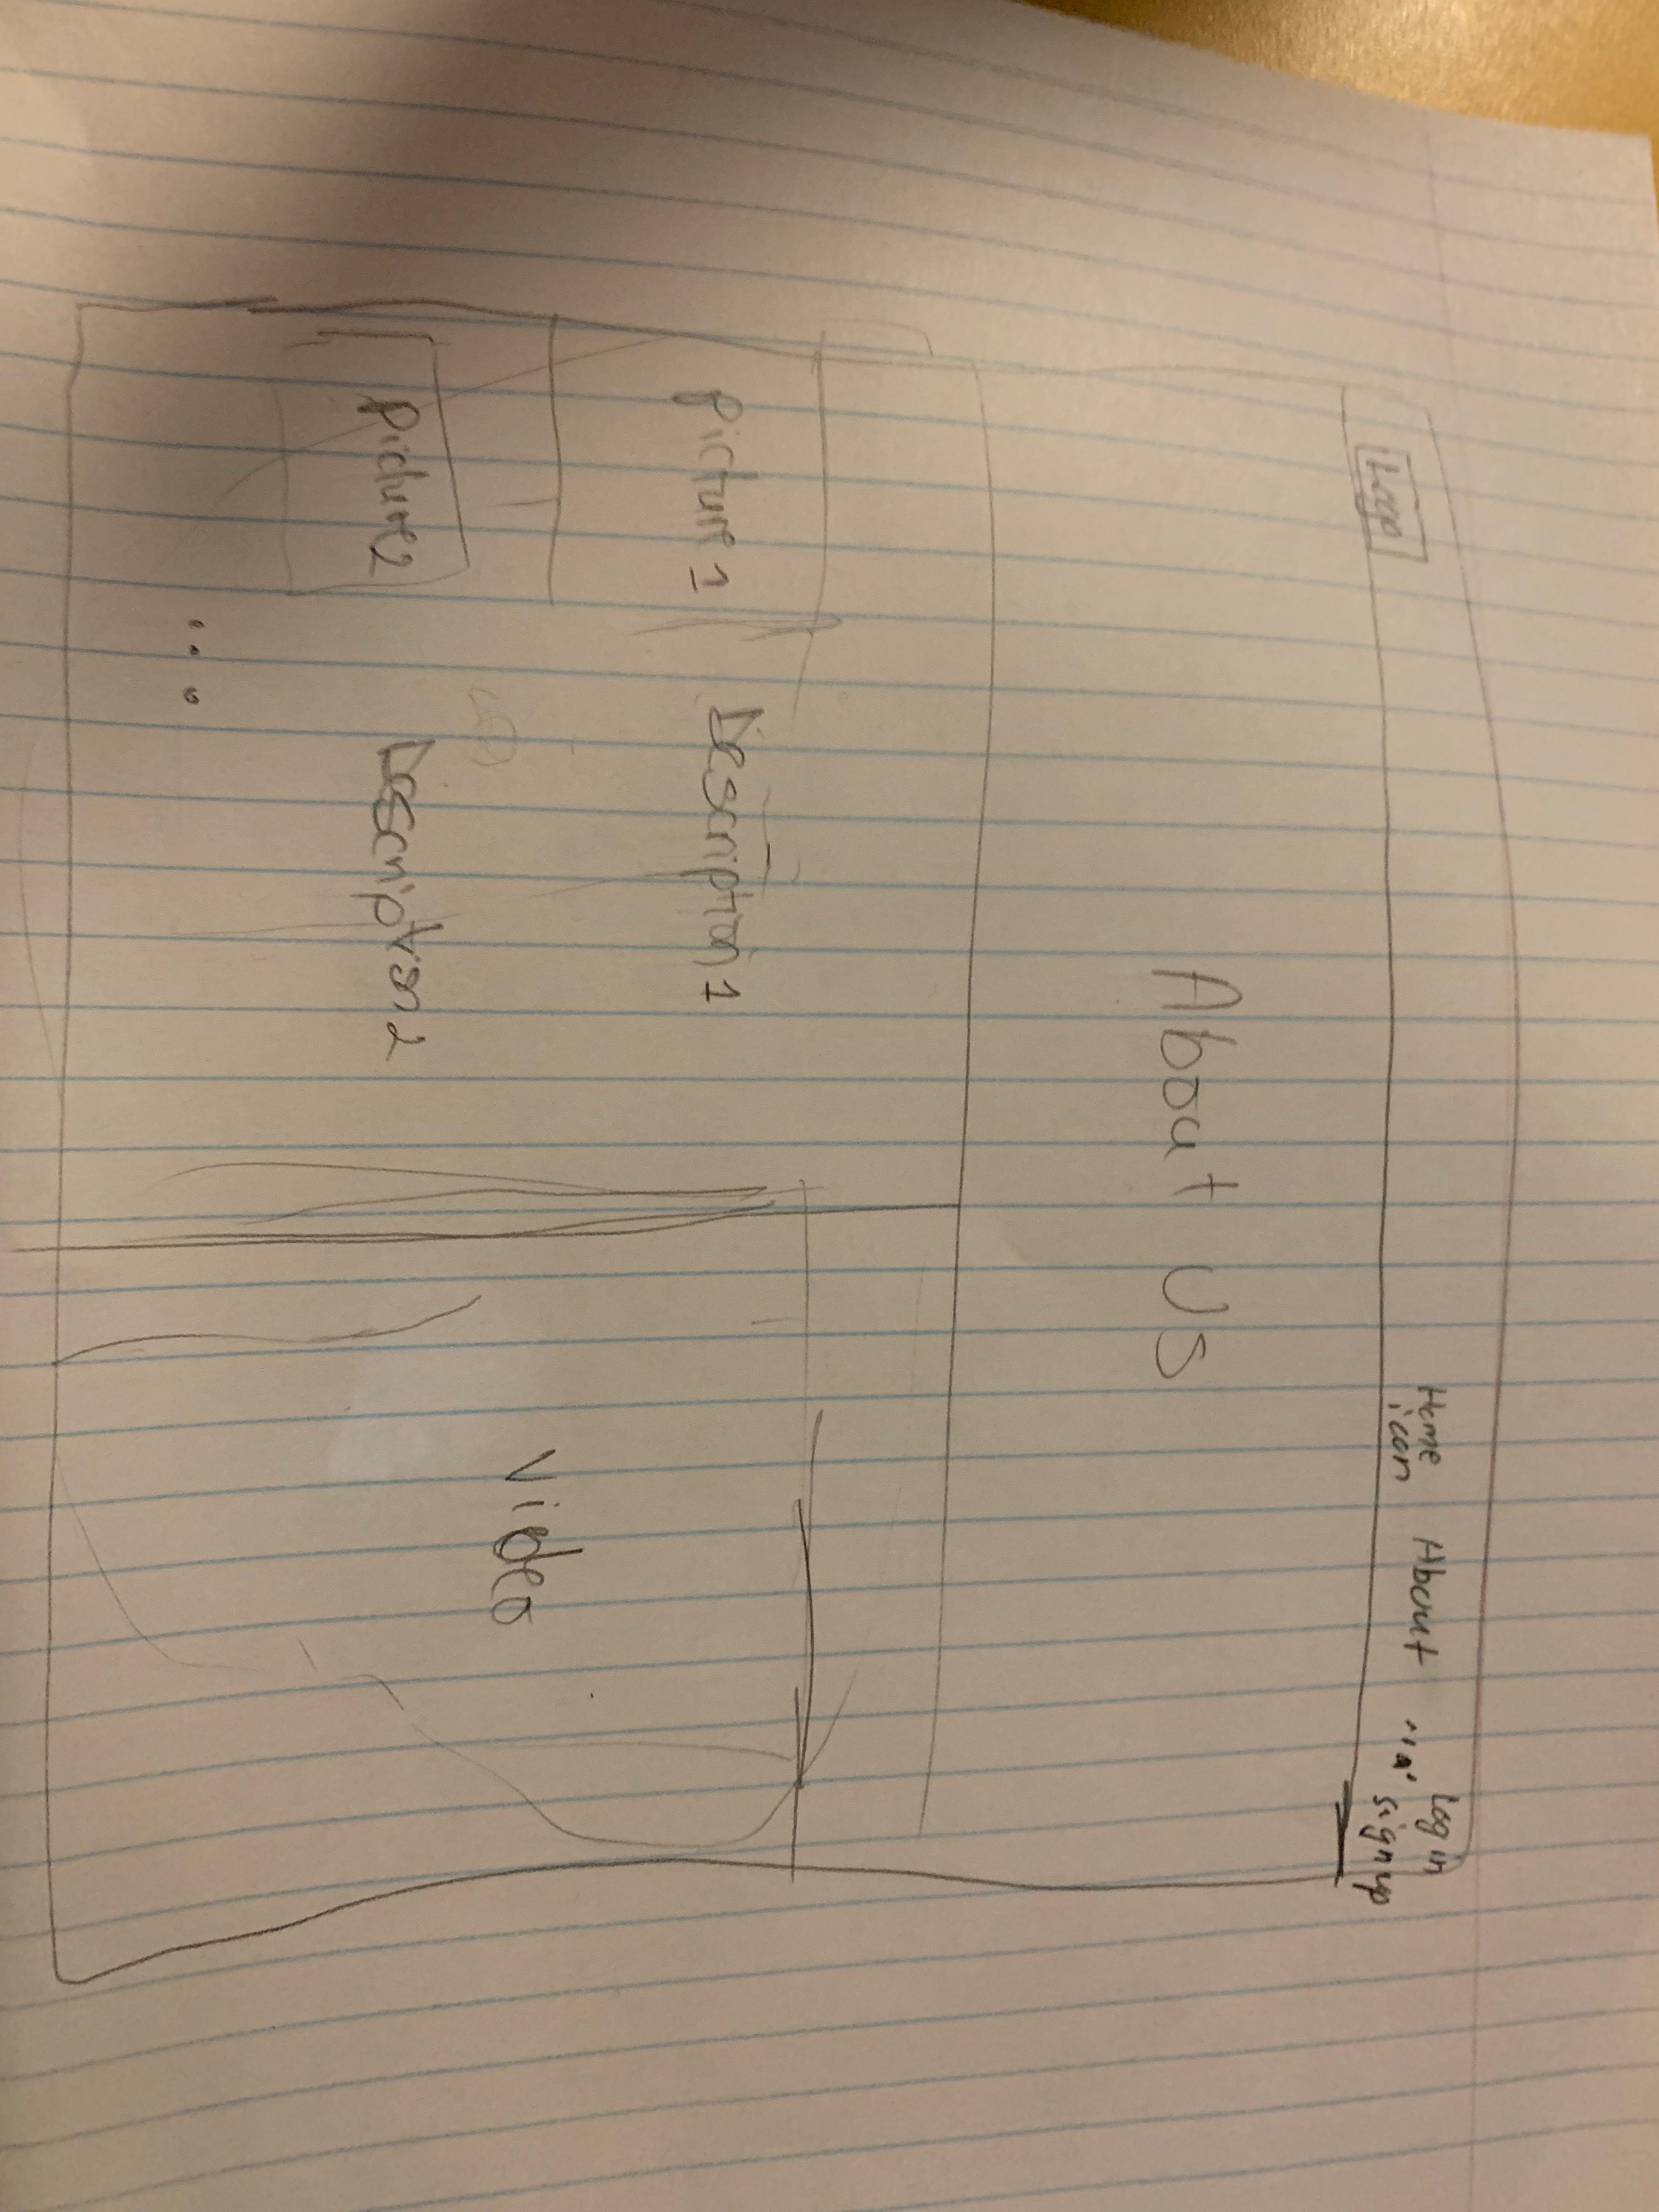 Logo
Home icon
About
...
Log in
sign up
About US
Picture 1
Description 1
Video
Picture 2
Description 2
...